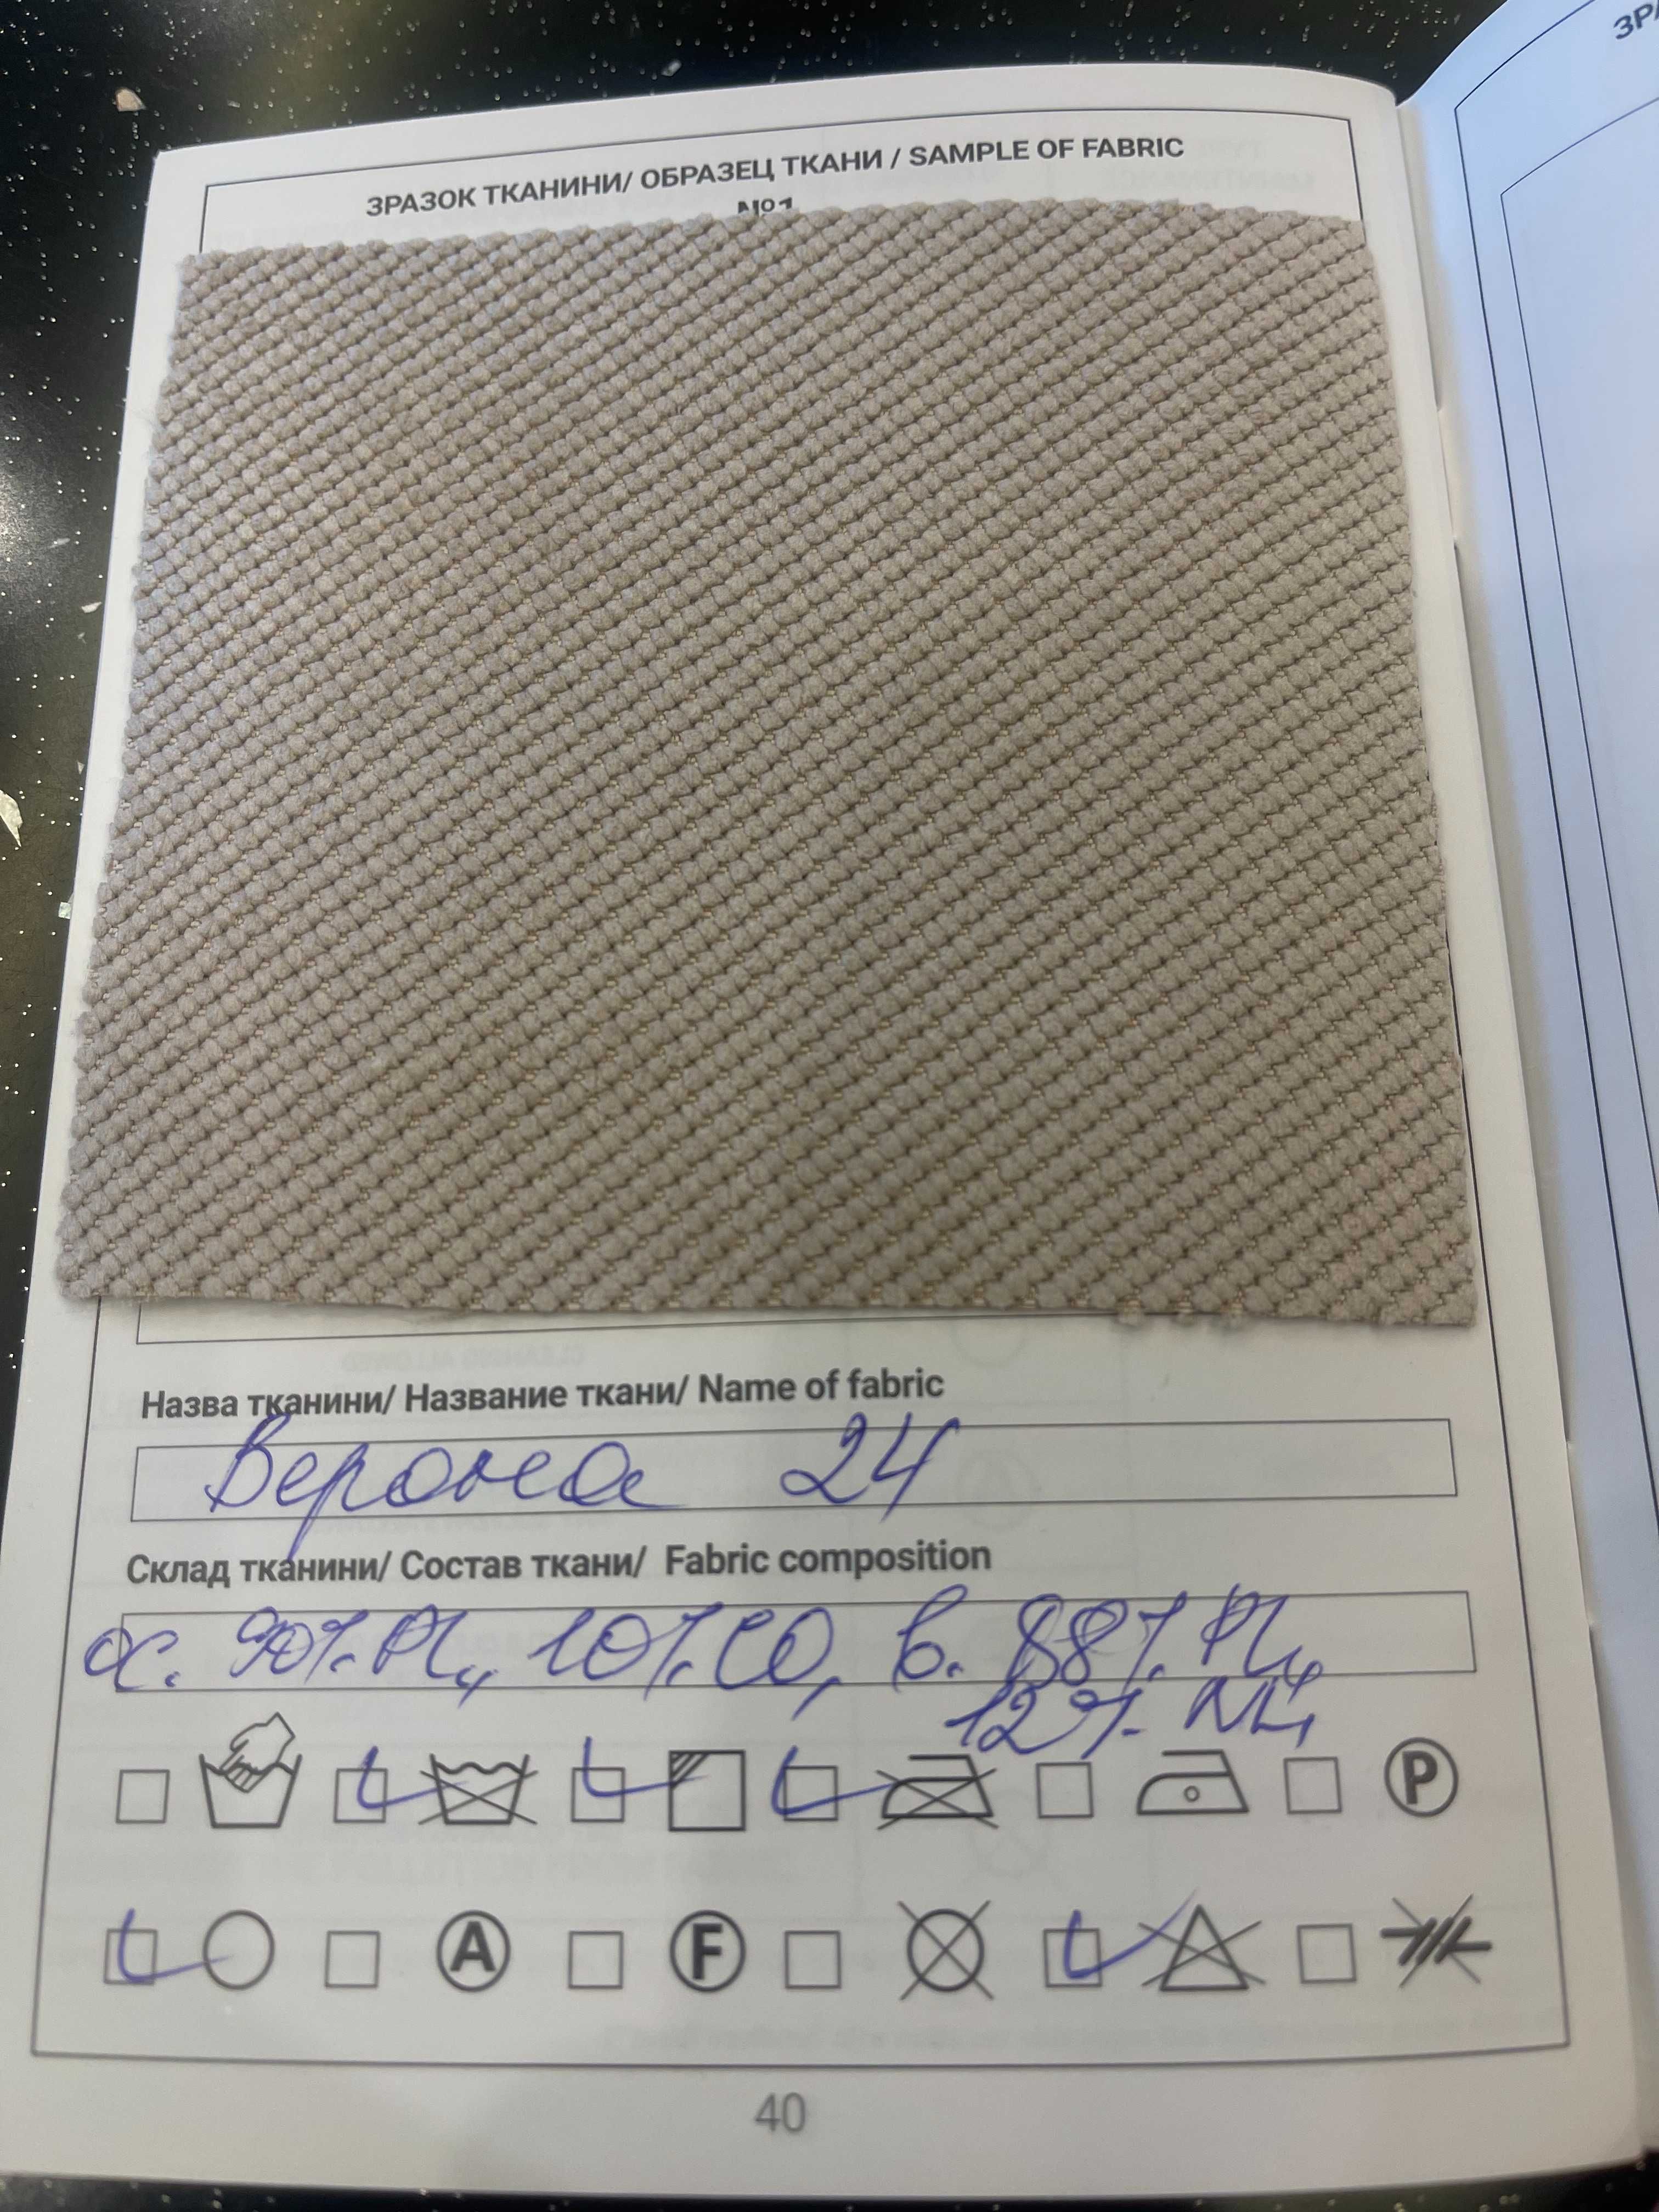 ЗРАЗОК ТКАНИНИ/ ОБРАЗЕЦ ТКАНИ / SAMPLE OF FABRIC
№1
Назва тканини/ Название ткани/ Name of fabric
Верона 24
Склад тканини/ Состав ткани/ Fabric composition
о. 90% PL, 10% CO, в. 88% PL,
12% NL,
P
A F
40